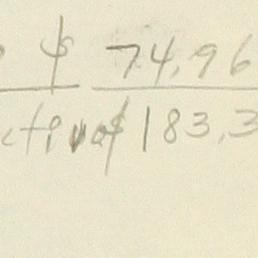 $ 74.96
$183.3